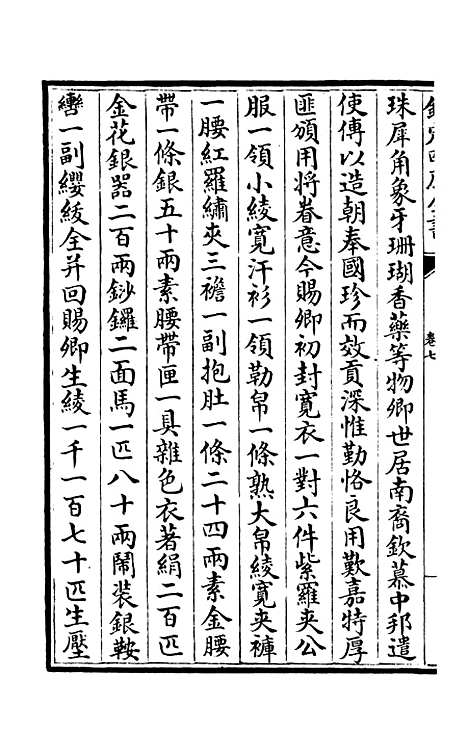 欽定四庫全書
卷七
珠犀角象牙珊瑚香藥等物卿世居南裔欽慕中邦遣
使傳以造朝奉國珍而效貢深惟勤恪良用歎嘉特厚
匪頒用將眷意今賜卿初封寬衣一對六件紫羅夾公
服一領小綾寬汗衫一領勒帛一條熟大帛綾寬夾褲
一腰紅羅繡夾三襜一副抱肚一條二十四兩素金腰
帶一條銀五十兩素腰帶匣一具雜色衣著絹二百匹
金花銀器二百兩鈔鑼二面馬一匹八十兩鬧裝銀鞍
轡一副纓紱全并回賜卿生綾一千一百七十匹生壓